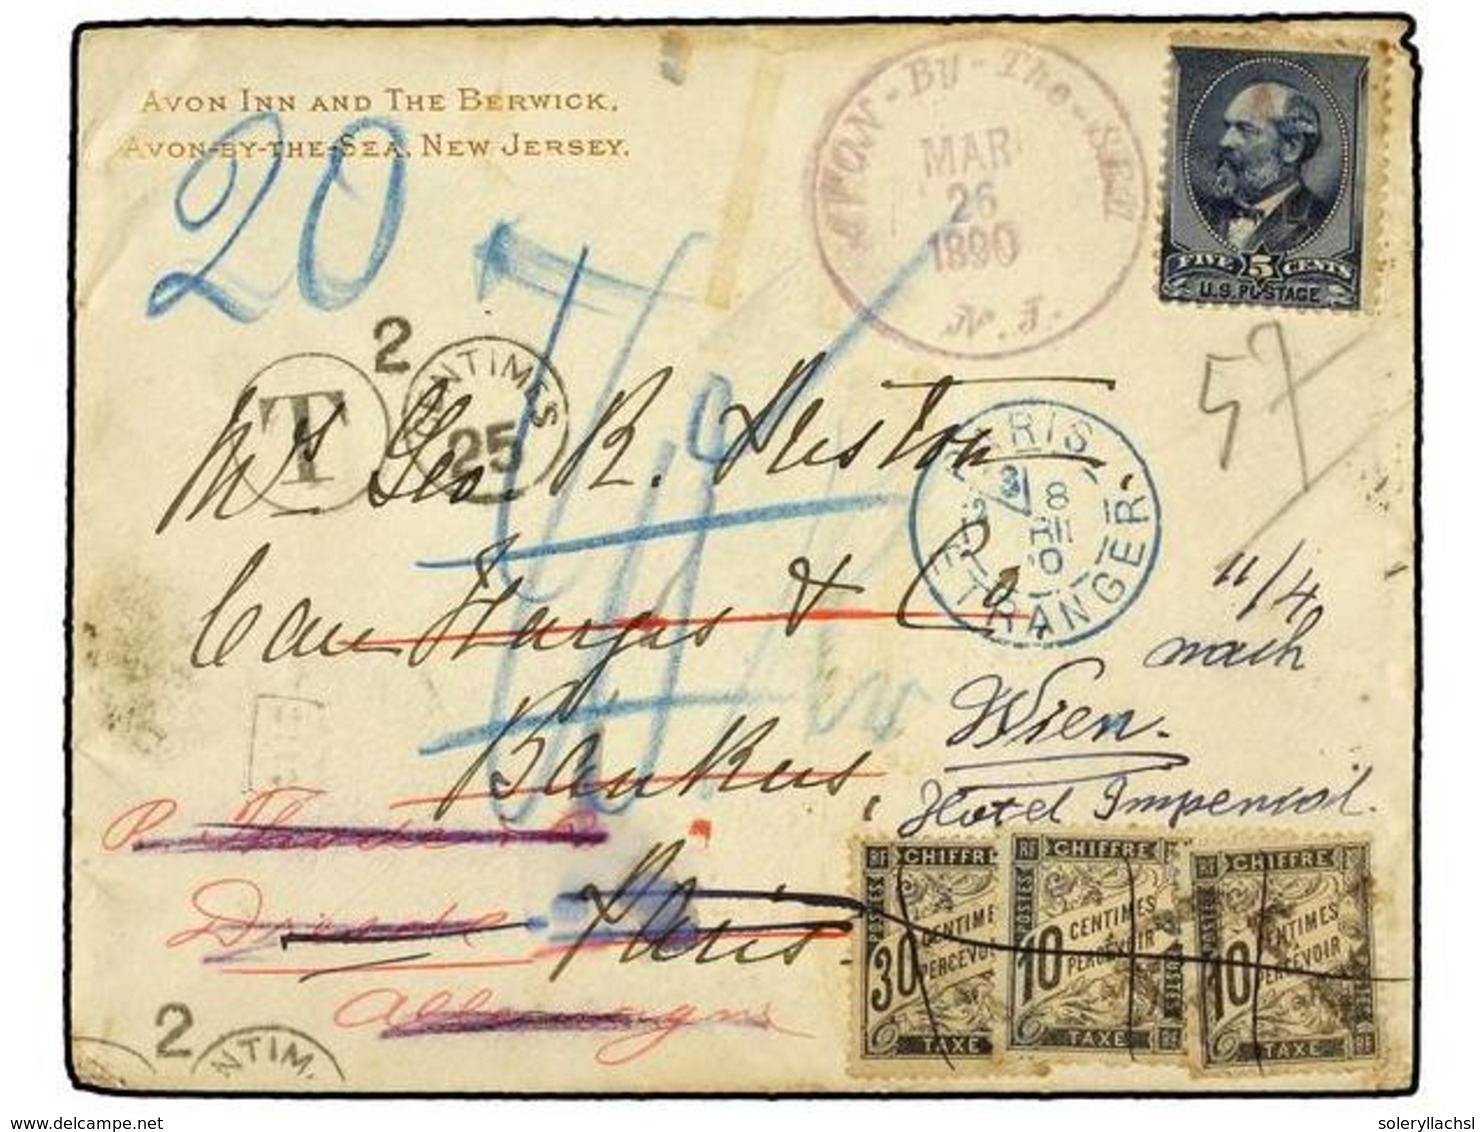 AVON INN AND THE BERWICK,
AVON-BY-THE-SEA, NEW JERSEY.
20
AVON-By-The-SEA
MAR
26
1890
N.J.
FIVE 5 CENTS
U.S. POSTAGE
57
2
T
CENTIMES
25
Mrs Geo R. Preston.
Care Harges & Co,
Bankers,
Paris.
PARIS
8
ETRANGER
11/4
nach
Wien.
Hotel Imperial.
Dresde
Allemagne
2
NTIM.
RF CHIFFRE
POSTES
30 CENTIME
PERCEVO
TAXE
RF CHIFFRE
POSTES
10 CENTIMES
PERCEVOIR
POSTES
TAXE RF
RF CHIFFRE
POSTES
10 CENTIMES
À PERCEVOIR
POSTES
TAXE RF
soleryllachsl